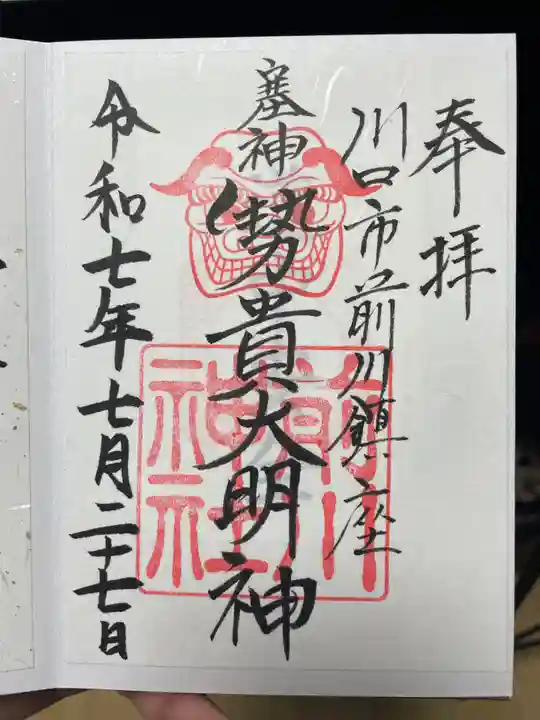 奉拝
川口市前川鎮座
塞神
勢貴大明神
令和七年七月二十七日
前川
神社